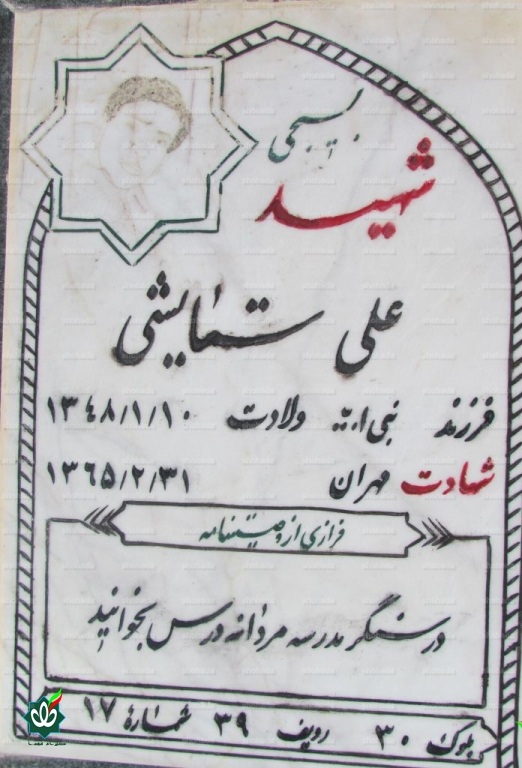 بسیجی
شهید
علی ستایشی
فرزند نبی اله ولادت ۱۳۴۸/۱/۱۰
شهادت مهران ۱۳۶۵/۲/۳۱
فرازی از وصیتنامه
در سنگر مدرسه مردانه درس بخوانید
بلوک ۳۰ ردیف ۳۹ شمارهٔ ۱۷